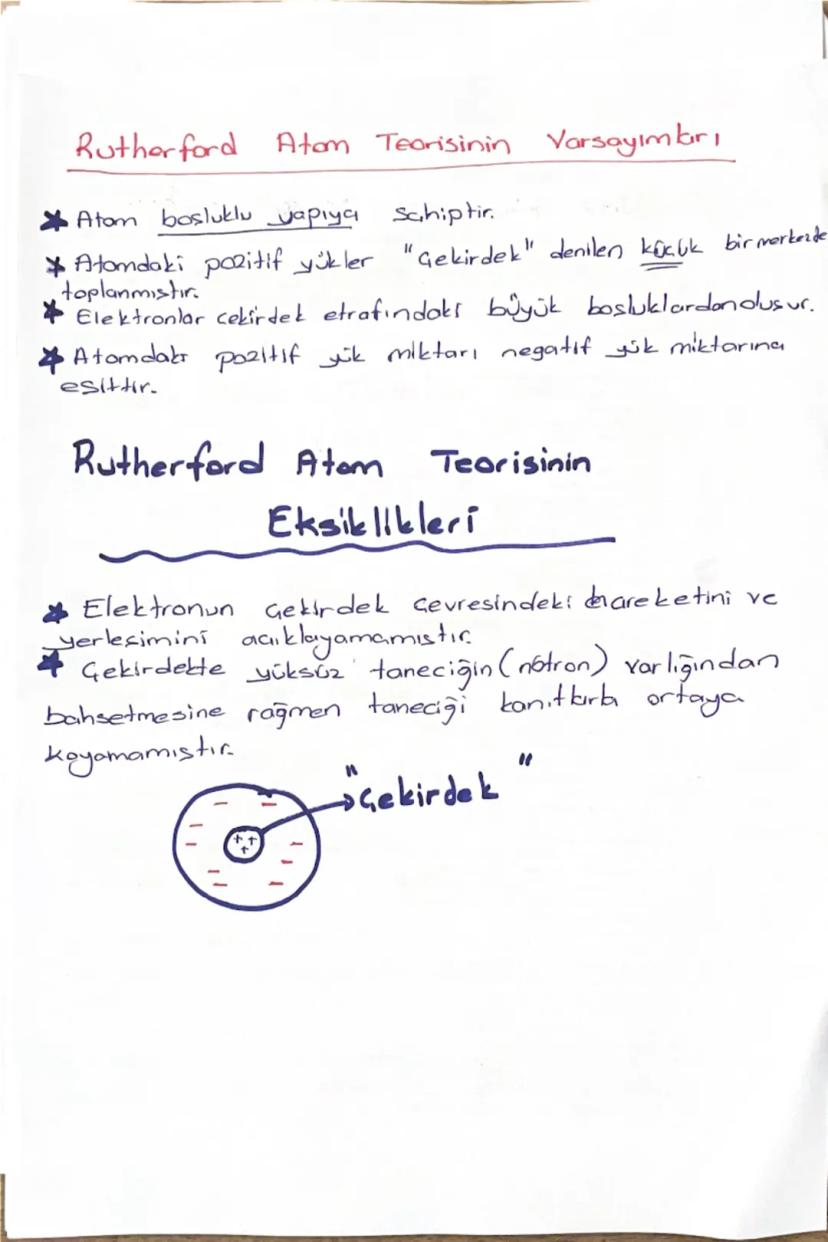 Rutherford Atom Teorisinin Varsayımları
* Atom boşluklu yapıya sahiptir.
* Atomdaki pozitif yükler "Çekirdek" denilen küçük bir merkezde
toplanmıştır.
* Elektronlar çekirdek etrafındaki büyük boşluklardan oluşur.
* Atomdaki pozitif yük miktarı negatif yük miktarına
eşittir.
Rutherford Atom Teorisinin
Eksiklikleri
* Elektronun çekirdek çevresindeki hareketini ve
yerleşimini açıklayamamıştır.
* Çekirdekte yüksüz taneciğin (nötron) varlığından
bahsetmesine rağmen taneciği kanıtlarla ortaya
koyamamıştır.
"Çekirdek"